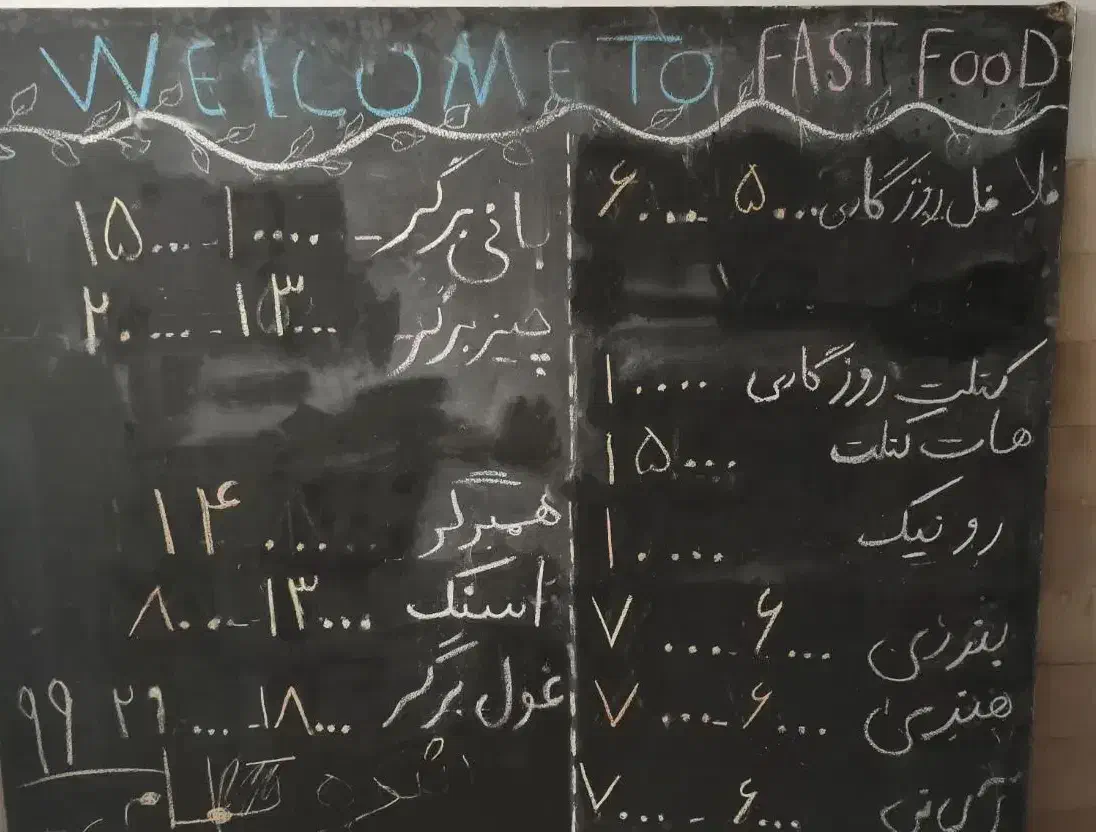 WELCOME TO FAST FOOD
فلافل روزگاری ۵۰۰۰ - ۶۰۰۰
کتلت روزگاری ۱۰۰۰۰
هات کتلت ۱۵۰۰۰
رونیک ۱۰۰۰۰
بندری ۶۰۰۰ - ۷۰۰۰
هندی ۶۰۰۰ - ۷۰۰۰
۶۰۰۰ - ۷۰۰۰
بانی برگر - ۱۰۰۰۰ - ۱۵۰۰۰
چیز برگر ۱۳۰۰۰ - ۲۰۰۰۰
همبرگر ۱۴۰۰۰
اسنک ۱۳۰۰۰ - ۸۰۰۰
غول برگر ۱۸۰۰۰ - ۲۹۰۰۰
۹۹